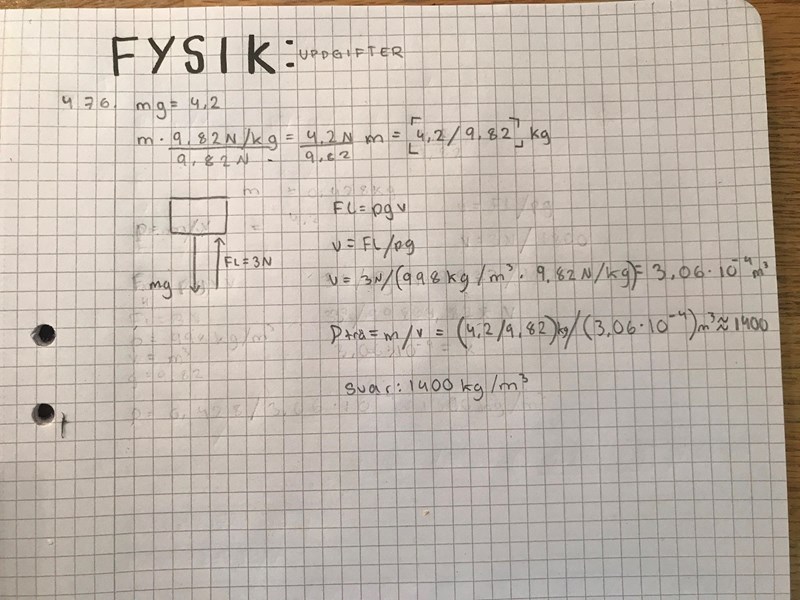 FYSIK: UPPGIFTER
476. mg = 4,2
m · 9,82N/kg / 9,82N = 4,2N / 9,82 m = [4,2/9,82] kg
FL = ρgv
v = FL/ρg
FL = 3N
mg
v = 3N/(998kg/m³ · 9,82N/kg) = 3,06·10⁻⁴m³
ρtra = m/v = (4,2/9,82)kg/(3,06·10⁻⁴)m³ ≈ 1400
svar: 1400 kg/m³